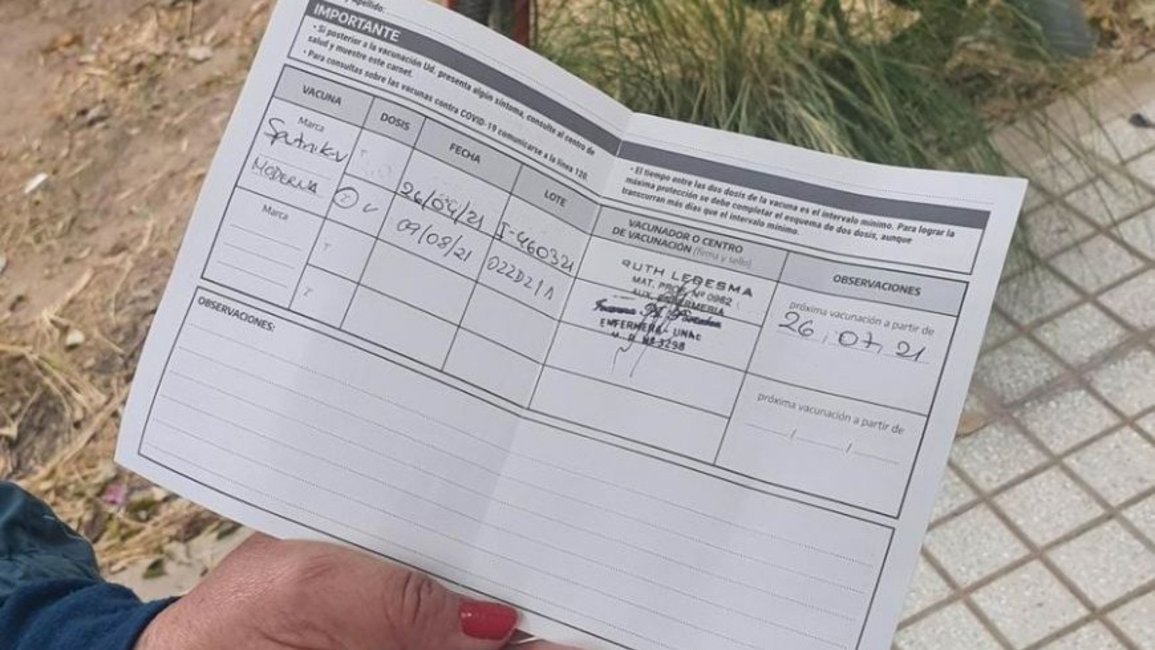 Apellido:
IMPORTANTE
• Si posterior a la vacunación Ud. presenta algún síntoma, consulte al centro de
salud y muestre este carnet.
• Para consultas sobre las vacunas contra COVID-19 comunicarse a la línea 120
• El tiempo entre las dos dosis de la vacuna es el intervalo mínimo. Para lograr la
máxima protección se debe completar el esquema de dos dosis, aunque
transcurran más días que el intervalo mínimo.
VACUNA DOSIS FECHA LOTE VACUNADOR O CENTRO
DE VACUNACIÓN (firma y sello) OBSERVACIONES
Marca
Sputnik-V 26/04/21 I-460321
RUTH LEDESMA
MAT. PROF. Nº 0962
AUX. ENFERMERIA
próxima vacunación a partir de
26, 07, 21
MODERNA 09/08/21 022D21A
ENFERMERA - UNAC
Nº 3298
Marca
próxima vacunación a partir de
/ /
OBSERVACIONES: